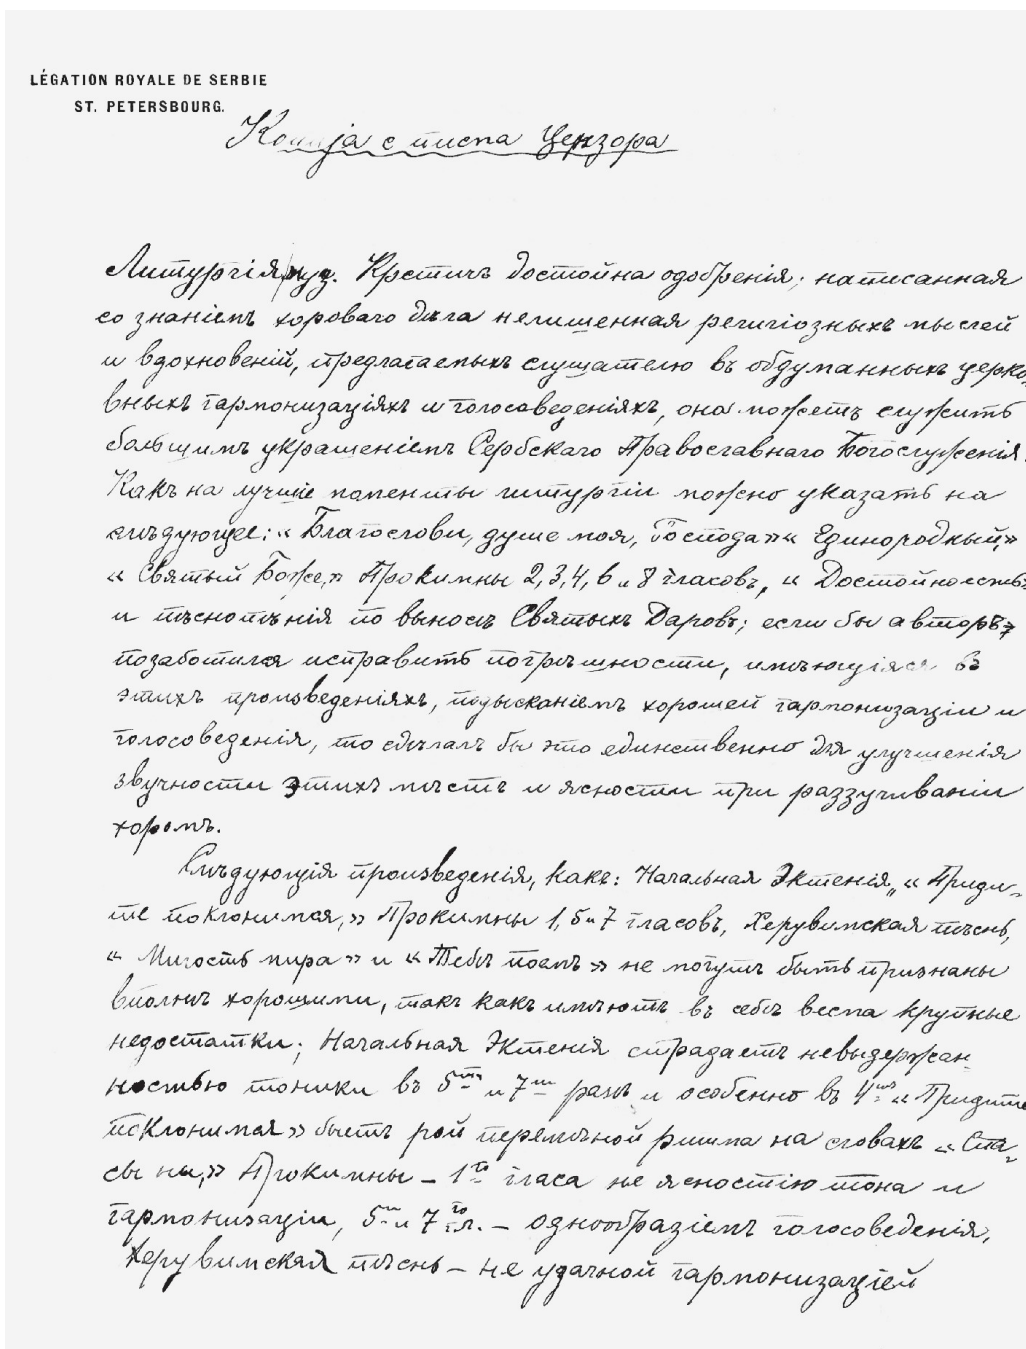 LÉGATION ROYALE DE SERBIE
ST. PETERSBOURG.
Копија с писма Цензора
Литургія муз. Крстичъ достойна одобренія; написанная
со знаніемъ хороваго дѣла нелишенная религіозныхъ мыслей
и вдохновеній, предлагаемыхъ слушателю въ обдуманныхъ церко-
вныхъ гармонизаціяхъ и голосоведеніяхъ, она можетъ служить
большимъ украшеніемъ Сербскаго Православнаго Богослуженія.
Какъ на лучшіе моменты литургіи можно указать на
слѣдующее: « Благослови, душе моя, Господа» « Единородный,»
« Святый Боже,» Прокимны 2, 3, 4, 6 и 8 гласовъ, « Достойно есть»
и пѣснопѣнія по выносѣ Святыхъ Даровъ; если бы авторъ
позаботился исправить погрѣшности, имѣющіяся въ
этихъ произведеніяхъ, подысканіемъ хорошей гармонизаціи и
голосоведенія, то сдѣлалъ бы это единственно для улучшенія
звучности этихъ мѣстъ и ясности при раззучиваніи
хоромъ.
Слѣдующія произведенія, какъ: Начальная Эктенія, « Приди-
те поклонимся,» Прокимны 1, 5 и 7 гласовъ, Херувимская пѣснь,
« Милость мира » и « Тебѣ поемъ » не могутъ быть признаны
вполнѣ хорошими, такъ какъ имѣютъ въ себѣ весма крупные
недостатки; Начальная Эктенія страдаетъ невыдержан-
ностью тоники въ 5мъ и 7м разъ и особенно въ 4мъ « Придите
поклонимся » быстрой перемѣной ритма на словахъ « Спа-
сы ны,» Прокимны – 1го гласа не ясностію тона и
гармонизаціи, 5м и 7го гл. – однообразіемъ голосоведенія,
Херувимская пѣснь – не удачной гармонизаціей